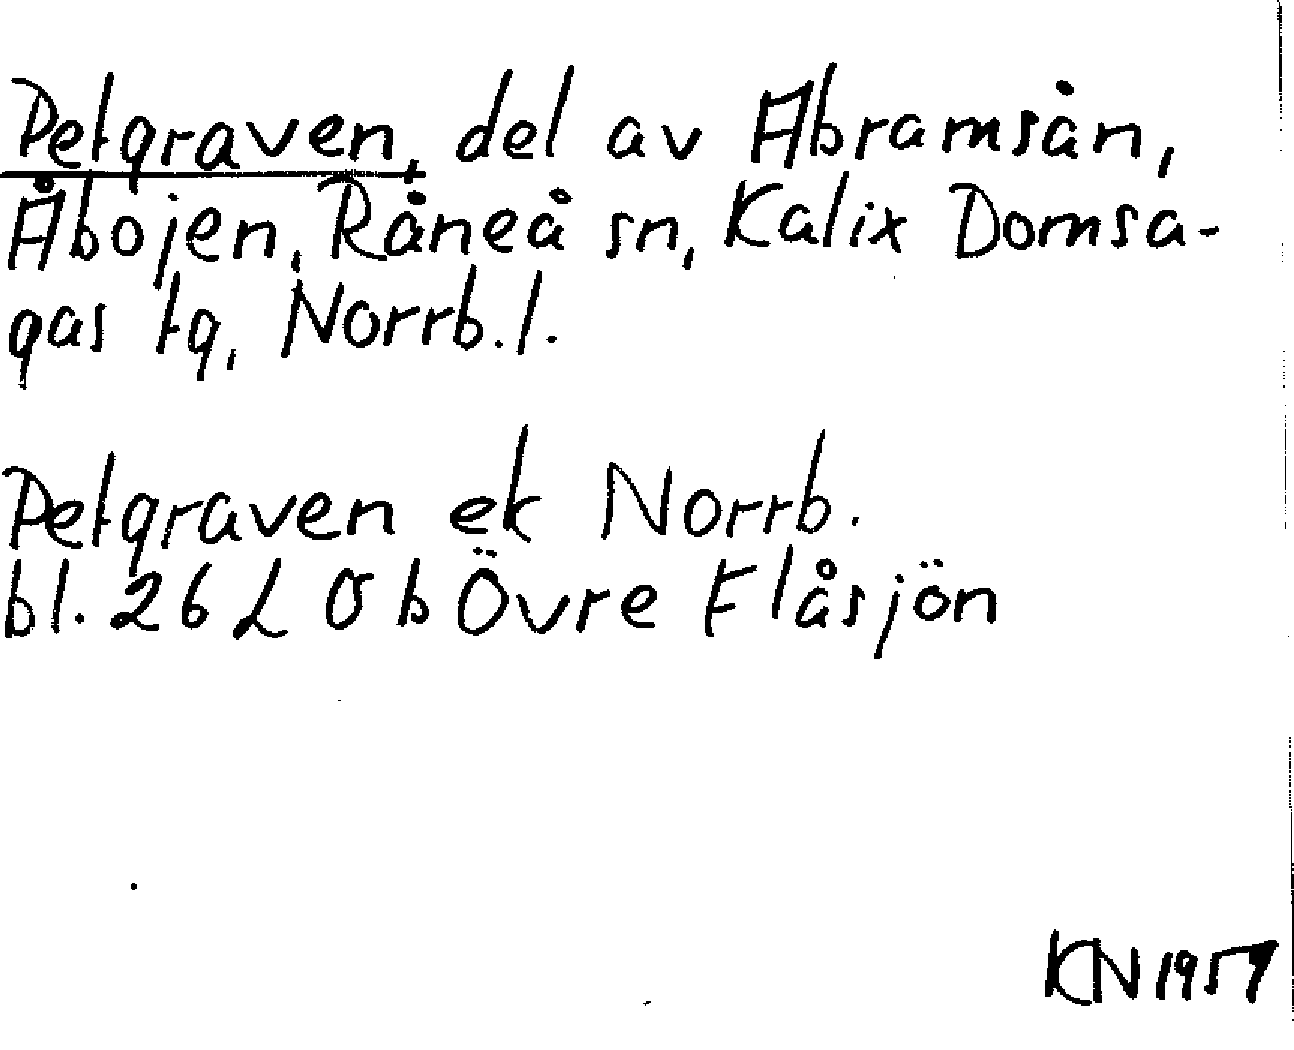 Petgraven, del av Abramsån,
Åbojen, Råneå sn, Kalix Domsa-
gas tg, Norrb.l.
Petgraven ek Norrb.
bl. 26 L 0 b Övre Flåsjön
KN 1957